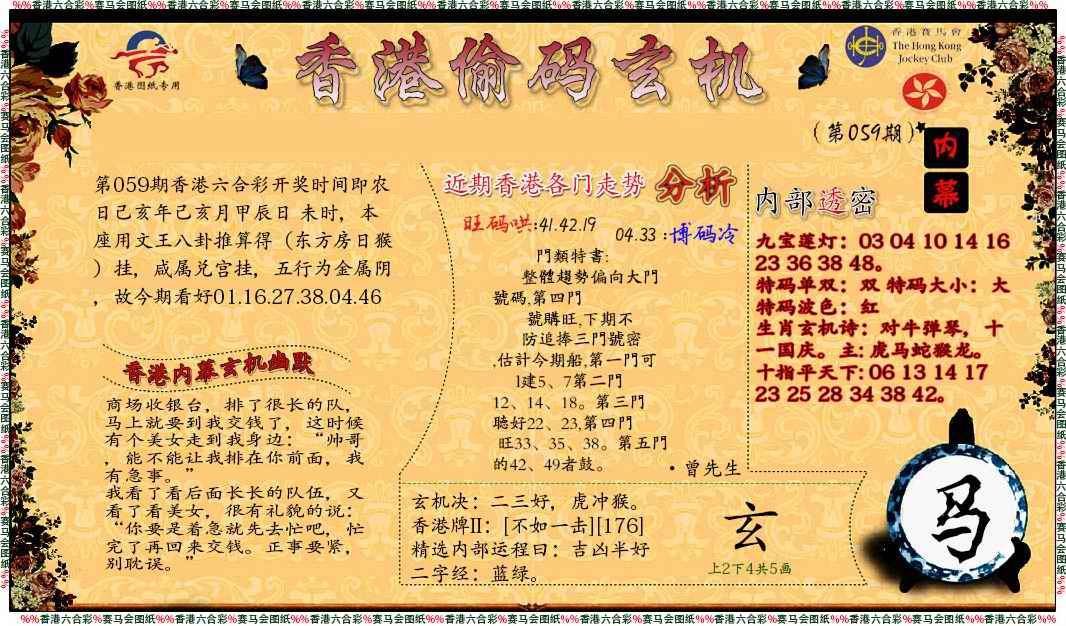 %%香港六合彩%赛马会图纸%%香港六合彩%赛马会图纸%%香港六合彩%赛马会图纸%%香港六合彩%赛马会图纸%%香港六合彩%赛马会图纸%%香港六合彩%赛马会图纸%%香港六合彩%%
香港图纸专用
香港偷码玄机
香港賽馬會
The Hong Kong
Jockey Club
(第059期)
内幕
第059期香港六合彩开奖时间即农
日己亥年己亥月甲辰日 未时，本
座用文王八卦推算得（东方房日猴
）挂，咸属兑宫挂，五行为金属阴
，故今期看好01.16.27.38.04.46
香港内幕玄机幽默
商场收银台，排了很长的队，
马上就要到我交钱了，这时候
有个美女走到我身边：“帅哥
，能不能让我排在你前面，我
有急事。”
我看了看后面长长的队伍，又
看了看美女，很有礼貌的说：
“你要是着急就先去忙吧，忙
完了再回来交钱。正事要紧，
别耽误。”
近期香港各门走势 分析
旺码哄:41.42.19
04.33 :博码冷
門類特書:
整體趨勢偏向大門
號碼,第四門
號購旺,下期不
防追捧三門號密
,估計今期船,第一門可
1建5、7第二門
12、14、18。第三門
聽好22、23,第四門
旺33、35、38。第五門
的42、49者鼓。
·曾先生
内部透密
九宝莲灯：03 04 10 14 16
23 36 38 48。
特码单双：双 特码大小：大
特码波色：红
生肖玄机诗：对牛弹琴，十
一国庆。主: 虎马蛇猴龙。
十指平天下: 06 13 14 17
23 25 28 34 38 42。
玄机决：二三好，虎冲猴。
香港牌II：[不如一击][176]
精选内部运程曰：吉凶半好
二字经：蓝绿。
玄
上2下4共5画
马
%%香港六合彩%赛马会图纸%%香港六合彩%赛马会图纸%%香港六合彩%赛马会图纸%%香港六合彩%赛马会图纸%%香港六合彩%赛马会图纸%%香港六合彩%赛马会图纸%%香港六合彩%%